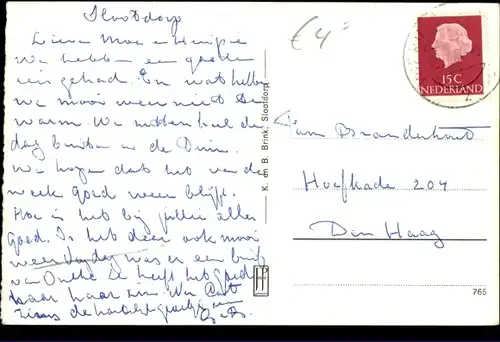 Slootdorp
Lieve Moe en
We hebben een goede
reis gehad. En wat hebben
we mooi weer niet te
warm. We zitten heel de
dag buiten in de Duin.
We hopen dat het van de
week goed weer blijft.
Hoe is het bij jullie alles
goed. Is het daar ook mooi
weer was er een brief
van heeft het goed
naar haar zin.
de hartelijke groetjes
€ 4
15 C
NEDERLAND
K. en B. Brink, Slootdorp
Fam Branderhorst
Hoefkade 204
Den Haag
765